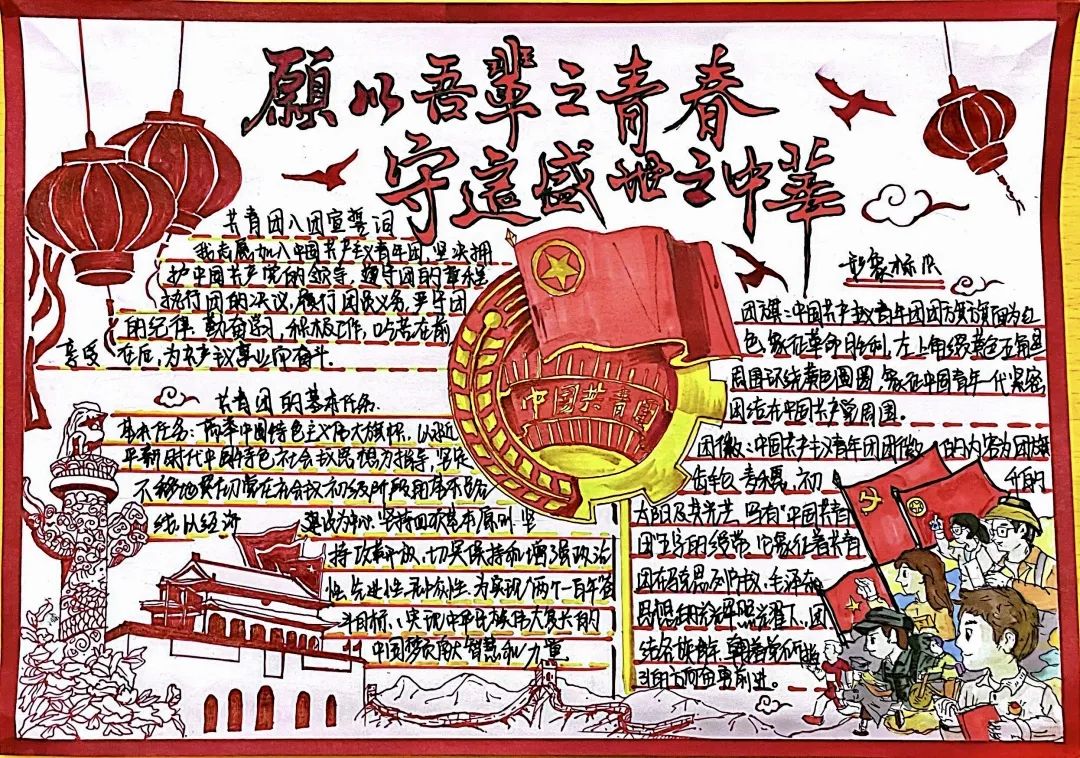 願以吾輩之青春
守這盛世之中華
共青团入团宣誓词
我志愿加入中国共产主义青年团,坚决拥
护中国共产党的领导,遵守团的章程
执行团的决议,履行团员义务,严守团
的纪律,勤奋学习,积极工作,吃苦在前
享受在后,为共产主义事业而奋斗。
共青团的基本任务
基本任务:高举中国特色主义伟大旗帜,以
平新时代中国特色社会主义思想为指导,坚定
不移地贯彻党在社会主义初级阶段的基本
线,以经济建设为中心,坚持四项基本原则,坚
持改革开放,切实保持和增强政治
性、先进性、群众性,为实现"两个一百年"奋
斗目标、实现中华民族伟大复兴的
中国梦贡献智慧和力量。
中國共青團
团旗:中国共产主义青年团团旗旗面为红
色,象征革命胜利,左上角缀黄色五角星
周围环绕黄色圆圈,象征中国青年一代紧密
团结在中国共产党周围。
团徽:中国共产主义青年团团徽的内容为团旗
齿轮、麦穗、初升的
太阳及其光芒,写有"中国共青
团"五字的绶带,它象征着共青
团在马克思列宁主义、毛泽东
思想的光辉照耀下,团
结各族青年,朝着党所指
引的方向奋勇前进。